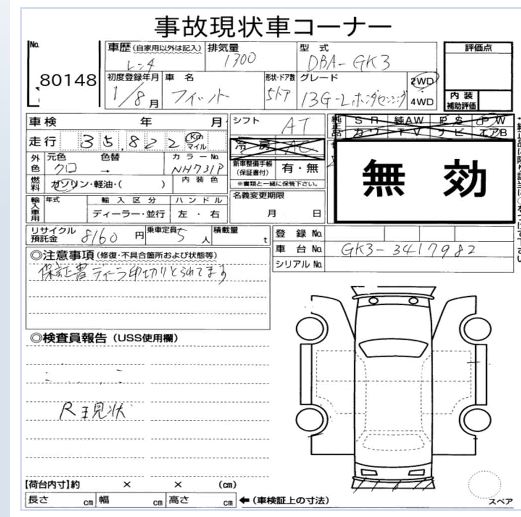 事故現状車コーナー
No. 80148
車歴 (自家用以外は記入) レンタ
排気量 1300
型式 DBA-GK3
評価点
初度登録年月 1/8月
車名 フィット
形状・ドア数 5ドア
グレード 13G-Lホンダセンシング
2WD 4WD
内装補助評価
車検 年 月
シフト AT
純正品 SR 純AW PS PW
カワ TV ナビ エアB
走行 35,822 Km マイル
冷房 AC
無効
外色 元色 クロ 色替 →
カラーNo. NH731P
新車整備手帳 (保証書付) 有・無
燃料 ガソリン・軽油・( )
内装色
※書類と一緒に保管下さい。
輸入車用 年式
輸入区分 ディーラー・並行
ハンドル 左・右
名義変更期限 月 日
リサイクル預託金 8160 円
乗車定員 5 人
積載量 t
登録No.
車台No. GK3-3417982
シリアルNo.
◎注意事項 (修復・不具合箇所および状態等)
保証書ディーラ印切りとられてます
◎検査員報告 (USS使用欄)
R王現状
【荷台内寸】約 × × (cm)
長さ cm 幅 cm 高さ cm ← (車検証上の寸法)
スペア